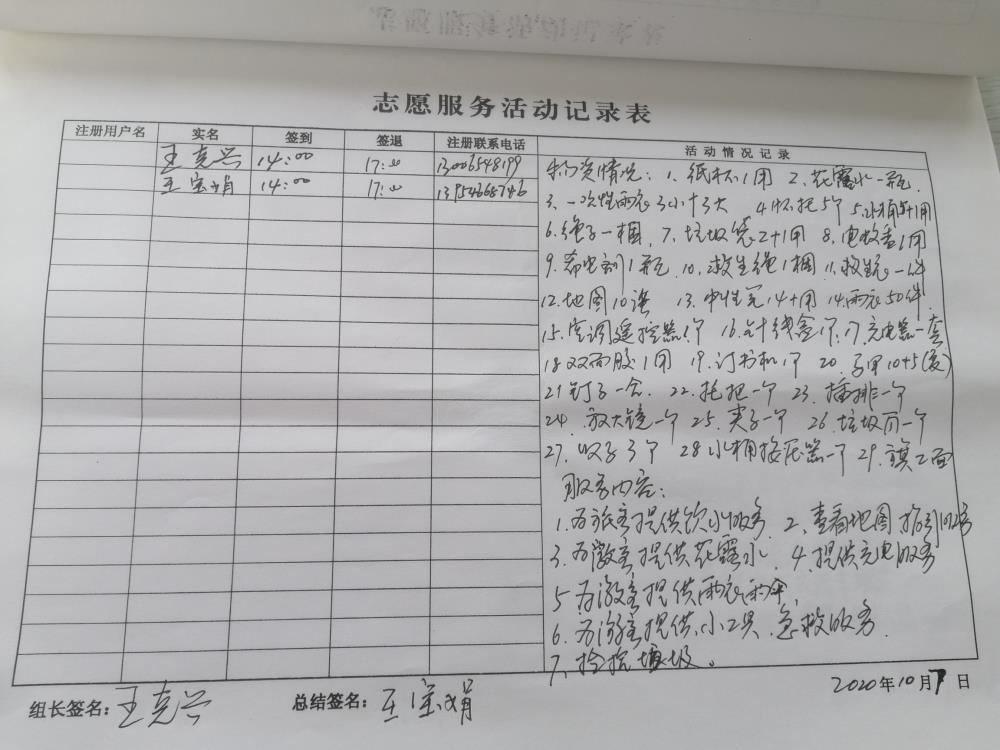 志愿服务活动记录表
注册用户名 实名 签到 签退 注册联系电话 活动情况记录
王克兴 14:00 17:00 13006548199
王宝娟 14:00 17:00
物资情况: 1、纸杯1用 2、花露水一瓶
3、一次性雨衣3小十3大
6、绳子一捆 7、垃圾袋2+1用
10、救生绳1捆 11、救生衣一件
12、地图10张 13、中性笔14+用 14、雨衣50件
15、空调遥控器1个 16、针线盒1个 17、充电器一套
18双面胶1用 19、订书机1个 20、马甲10+5(夏)
21钉子一合 22、托把一个 23、插排一个
24、放大镜一个 25、夹子一个 26、垃圾 一个
27、 3个 28小桶 器一个 29、旗2面
服务内容:
1、为旅客提供饮水服务 2、查看地图指引
3、为游客提供花露水 4、提供充电服务
5为游客提供雨衣雨伞
6、为游客提供小工具、急救服务
7、捡拾垃圾。
组长签名: 王克兴 总结签名: 王宝娟 2020年10月7日